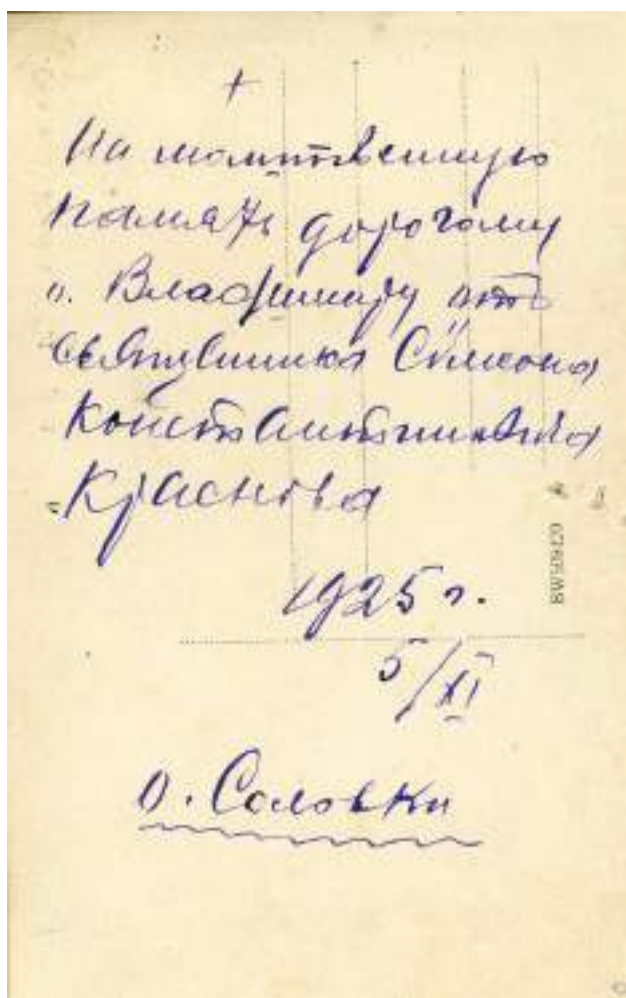 +
На молитвенную
память дорогому
о. Владимиру отъ
священника Симеона
Константиновича
Краснова
1925 г.
5/XI
о. Соловки